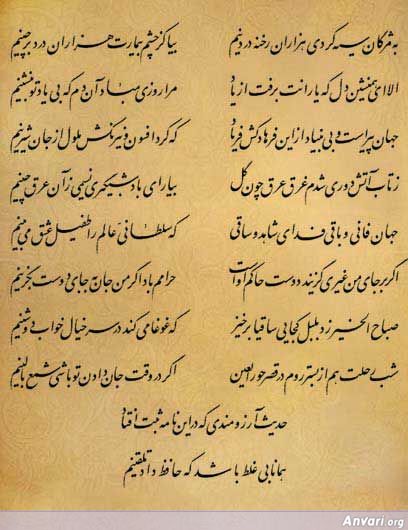 به مژگان سیه کردی هزاران رخنه در دینم بیا کز چشم بیمارت هزاران درد برچینم
الا ای همنشین دل که یارانت برفت از یاد مرا روزی مباد آن دم که بی یاد تو بنشینم
جهان پیر است و بی بنیاد از این فرهادکش فریاد که کرد افسون و نیرنگش ملول از جان شیرینم
ز تاب آتش دوری شدم غرق عرق چون گل بیار ای باد شبگیری نسیمی زان عرق چینم
جهان فانی و باقی فدای شاهد و ساقی که سلطانی عالم را طفیل عشق می بینم
اگر بر جای من غیری گزیند دوست حاکم اوست حرامم باد اگر من جان به جای دوست بگزینم
صباح الخیر زد بلبل کجایی ساقیا برخیز که غوغا می کند در سر خیال خواب دوشینم
شب رحلت هم از بستر روم در قصر حورالعین اگر در وقت جان دادن تو باشی شمع بالینم
حدیث آرزومندی که در این نامه ثبت افتاد
همانا بی غلط باشد که حافظ داد تلقینم
Anvari.org